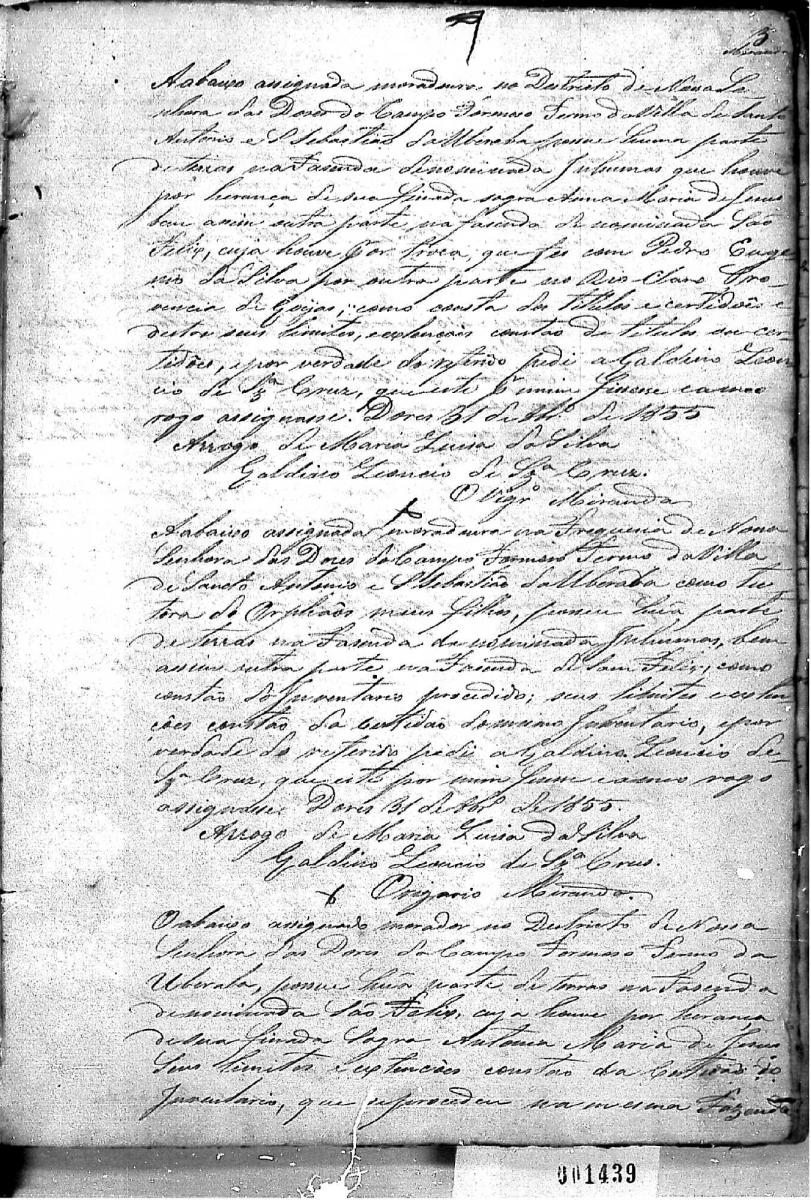 5
Miranda
A abaixo assignada moradura no Destricto de Nossa Se-
nhora das Dores do Campo Formoso Termo da Villa de Santo
Antonio e S Sebastião da Uberaba possue huma parte
de terras na Fasenda denominada Julumas que houve
por herança de sua finada sogra Anna Maria de Jesus
bem assim outra parte na fasenda denominada São
Felis, cuja houve por troca, que fes com Pedro Euge-
nio da Silva por outra parte no Rio Claro Pro-
vencia de Goijas; como consta dos titulos e certidoẽ e
destes seus limites, extençois constão de titulos ou cer-
tidoẽs, e por verdade do referido pedi a Galdino Leon-
cio de Sz.ª Cruz, que este pr mim fisesse e a meo
rogo assignasse. Dores 31 de 8br.º de 1855
Arrogo de Maria Luisa da Silva
Galdino Leoncio de Sz.ª Cruz.
O Vigr.º Miranda
A abaixo assignada moradura na Freguesia de Nossa
Senhora das Dores do Campo Formoso Termo da Villa
de Sancto Antonio e S Sebastião da Uberaba como tu-
tora do Orphãos meus filhos, possue huã parte
de terras na Fasenda denominada Julumas, bem
assim outra parte na Fasenda de Sam Felis, como
constão do Inventario procedido; seus limites e exten-
ções constão da Certidão do mesmo Inventario, e por
verdade do referido pedi a Galdino Leoncio de
Sz.ª Cruz, que este por mim fisesse e a meo rogo
assignasse. Dores 31 de 8br.º de 1855
Arrogo de Maria Luisa da Silva
Galdino Leoncio de Sz.ª Crus.
O vigario Miranda.
O abaixo assignado morador no Destricto de Nossa
Senhora das Dores do Campo Formoso Termo da
Uberaba, possue huã parte de terras na Fasenda
denominada São Felis, cuja houve por herança
de sua finada Sogra Antonia Maria de Jesus
Seus limites e extenções constão da Certidão do
Inventario, que se procedeu na mesma Fazenda
001439